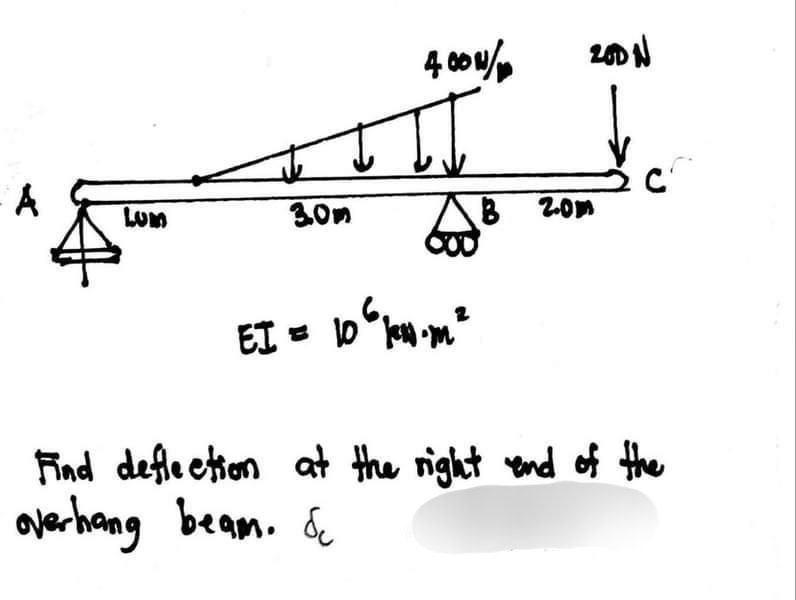 400 N/m 200 N
A C
1.0m 3.0m B 2.0m
EI = 10⁶ kN·m²
Find deflection at the right end of the
overhang beam. δc